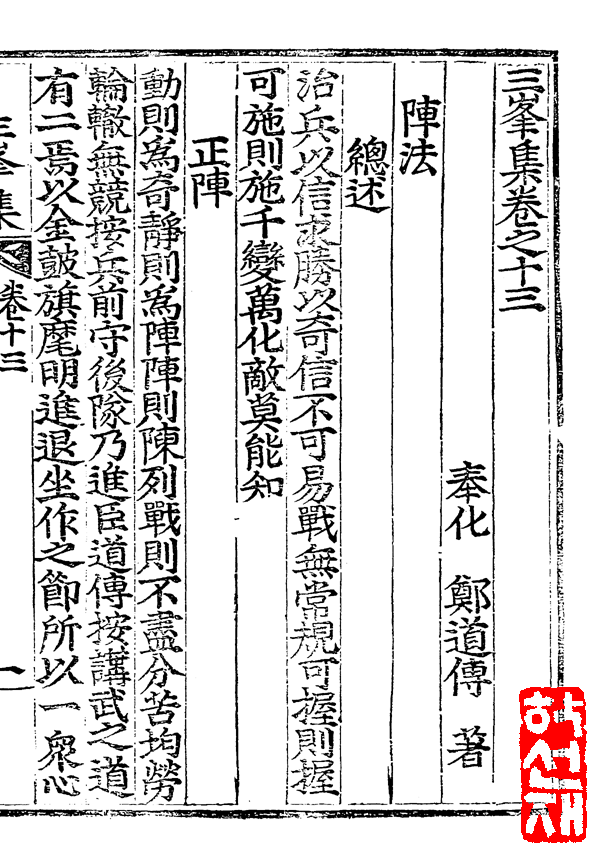 三峯集卷之十三
奉化 鄭道傳 著
陣法
總述
治兵以信求勝以奇信不可易戰無常規可握則握
可施則施千變萬化敵莫能知
正陣
動則為奇靜則為陣陣則陳列戰則不盡分苦均勞
輪轍無競按兵前守後隊乃進臣道傳按講武之道
有二焉以金鼓旗麾明進退坐作之節所以一衆心
三峯集 卷十三 一
학선재